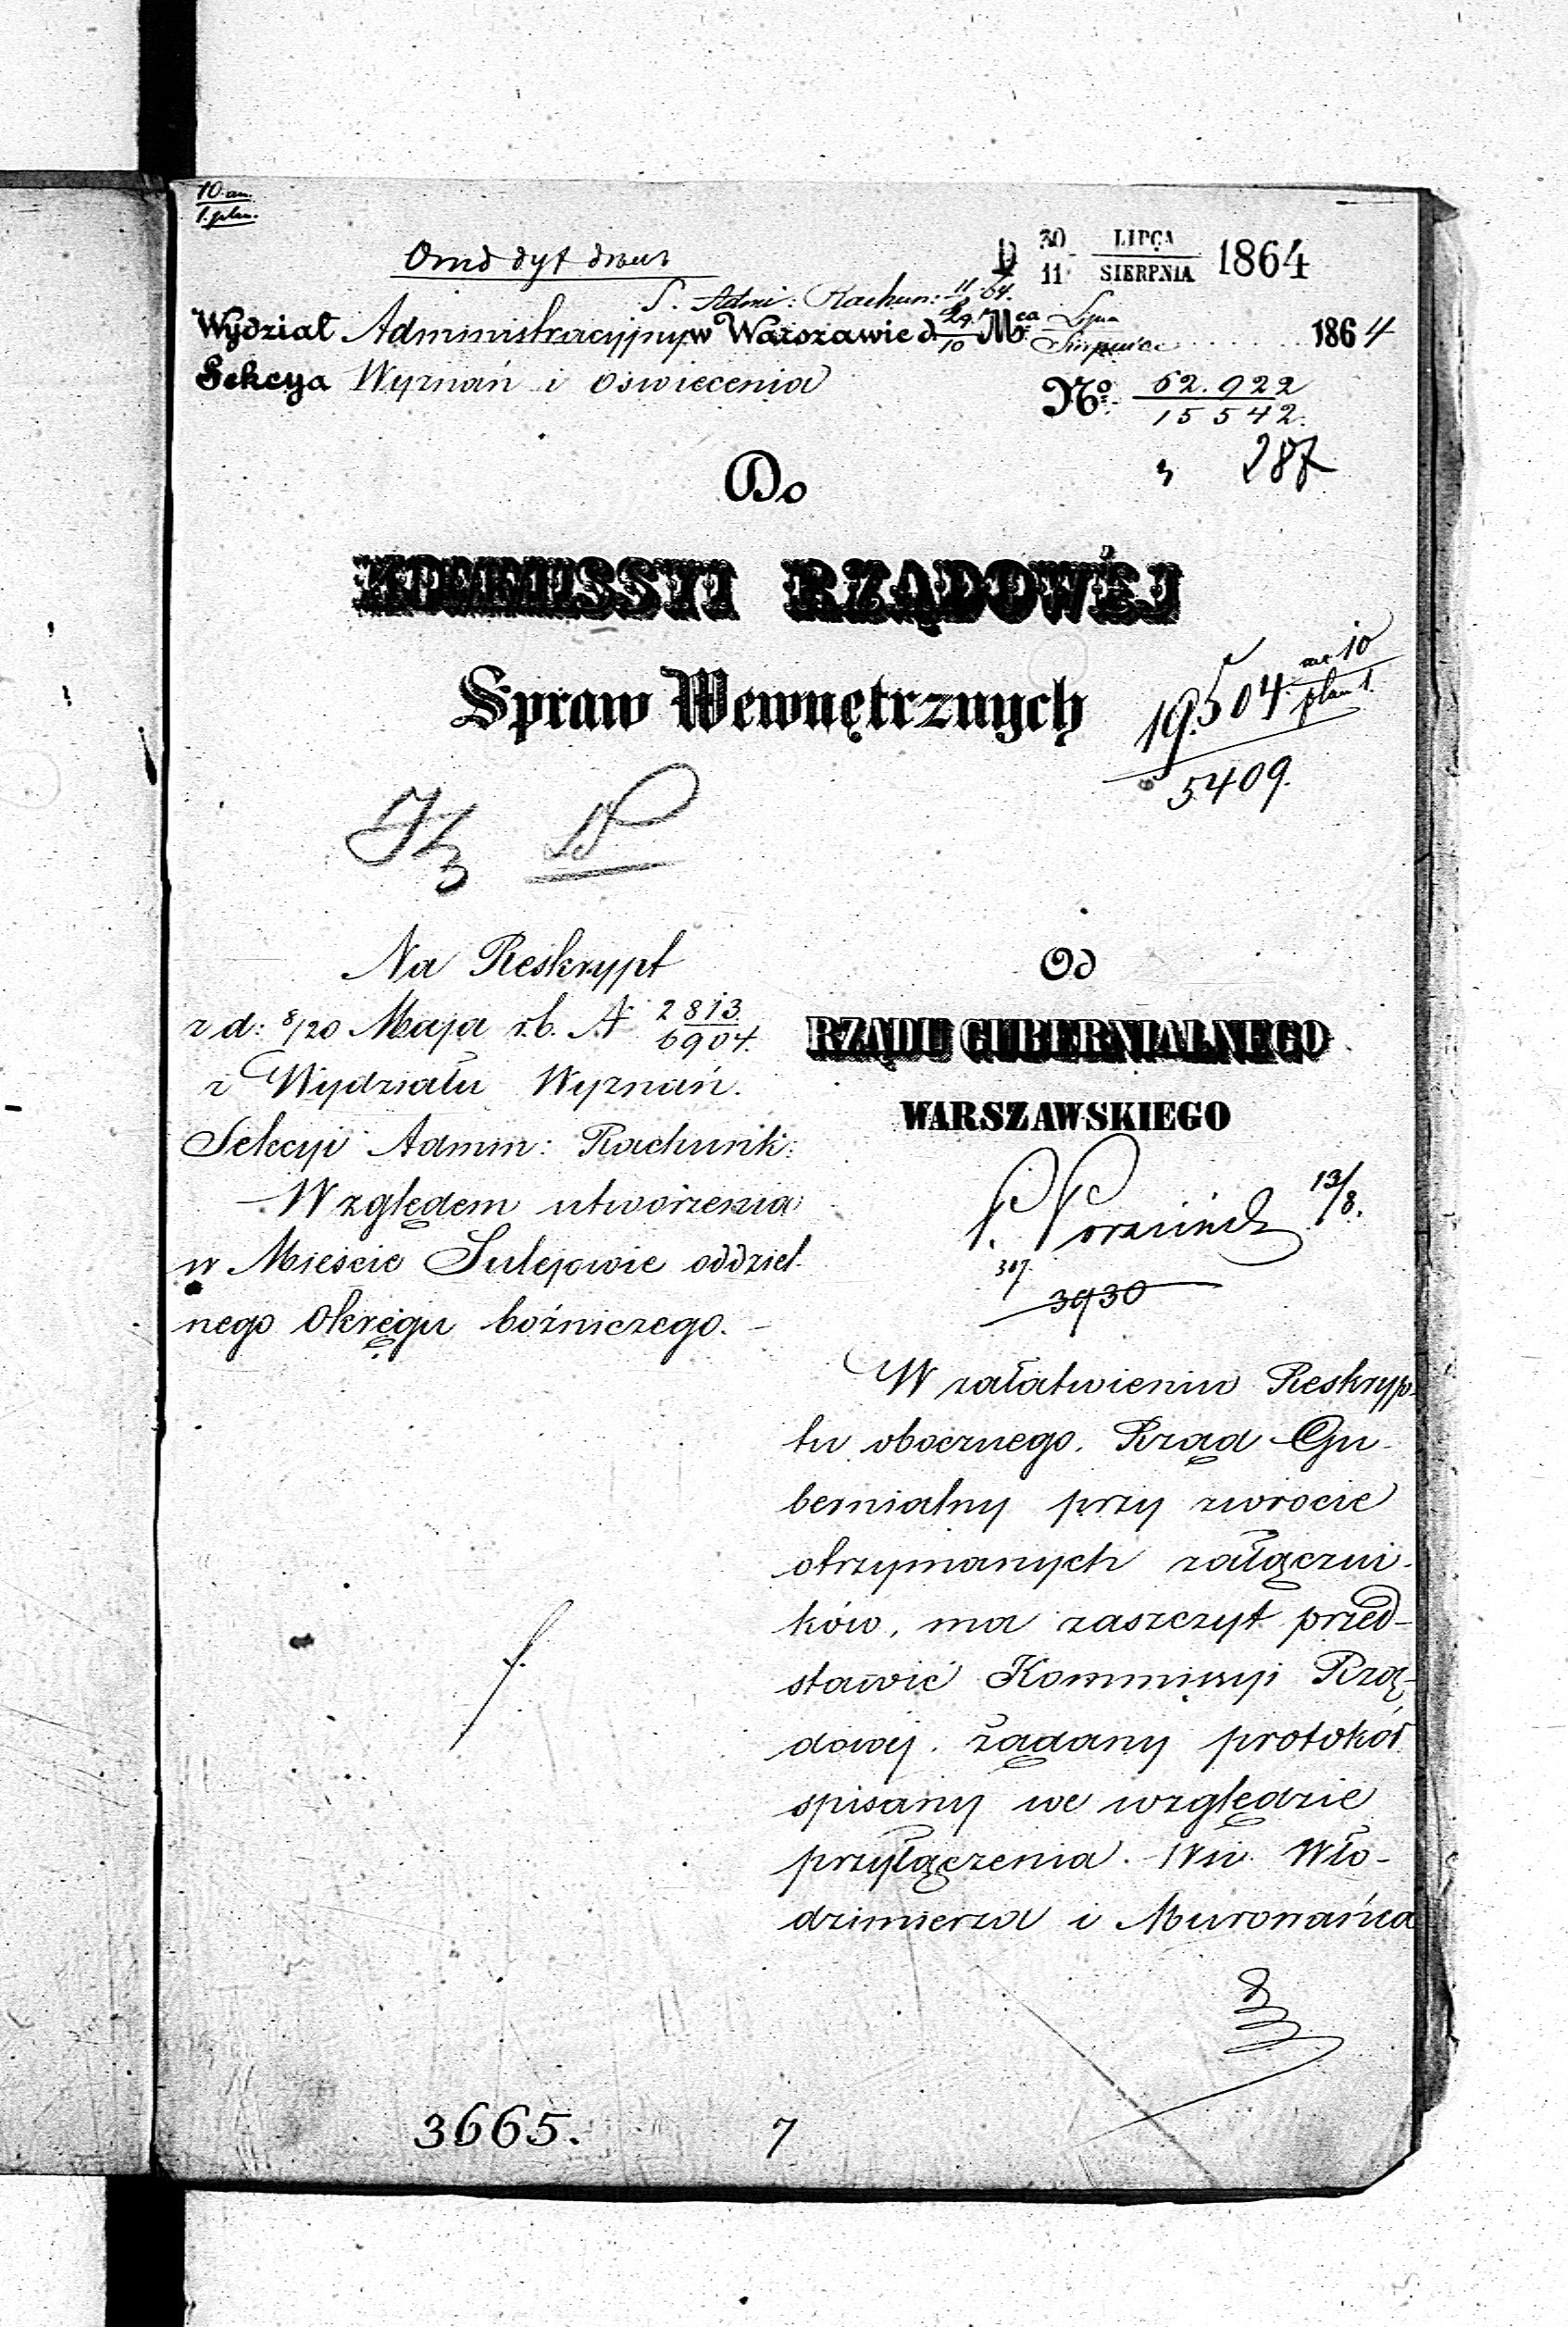 10. an.
1. plan.
D 30 LIPCA 1864
11 SIERPNIA
S. Admi: Rachun: 11/8 64.
Wydział Administracyjny w Warszawie d. 29/10 Mca Lipca 1864
Sierpnia
Sekcya Wyznań i Oswiecenia
No. 62.922
15542.
287
Do
KOMMISSYI RZĄDOWÉJ
Spraw Wewnętrznych
19.504. an 10
plan 1.
5409.
Na Reskrypt
z d: 8/20 Maja r.b. N 2813
6904.
z Wydziału Wyznań.
Sekcyi Admin: Rachunk:
Względem utworzenia
w Mieście Sulejowie oddziel-
nego Okręgu bożniczego. –
Od
RZĄDU GUBERNIALNEGO
WARSZAWSKIEGO
13/8.
307.
3930
W załatwieniu Reskryp-
tu obocznego. Rząd Gu-
bernialny przy zwrocie
otrzymanych załączni-
ków, ma zaszczyt przed-
stawić Kommissyi Rzą-
dowej. żądany protokół
spisany we względzie
przyłączenia. Wsi Wło-
dzimierza i Murowańca
3665.
7